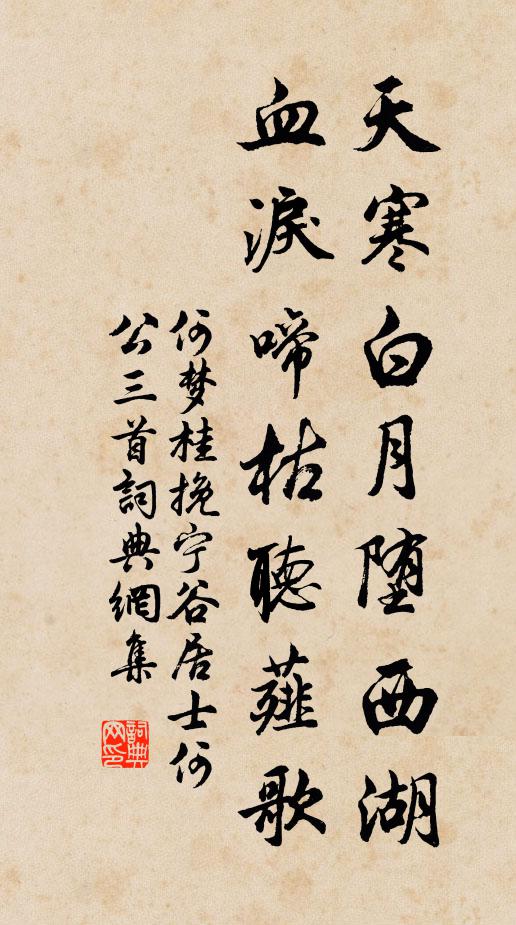 天寒白月堕西湖
血淚啼枯聽薤歌
何梦桂挽宁谷居士何
公三首詞典網集
詞典
网印